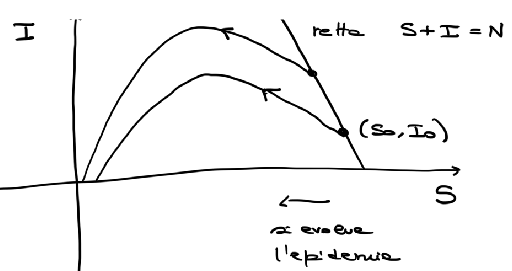 I
retta S+I=N
(S₀, I₀)
S
si evolve
l'epidemia